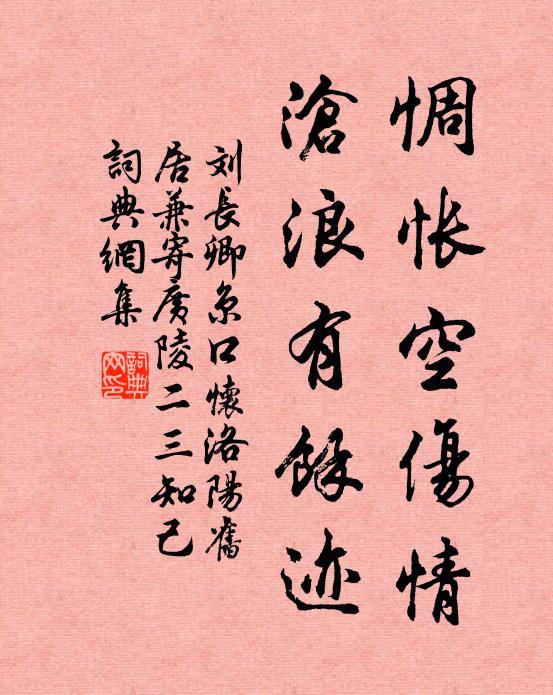 惆怅空傷情
滄浪有餘迹
刘長卿京口懷洛陽舊
居兼寄廣陵二三知己
詞典網集
詞典網印